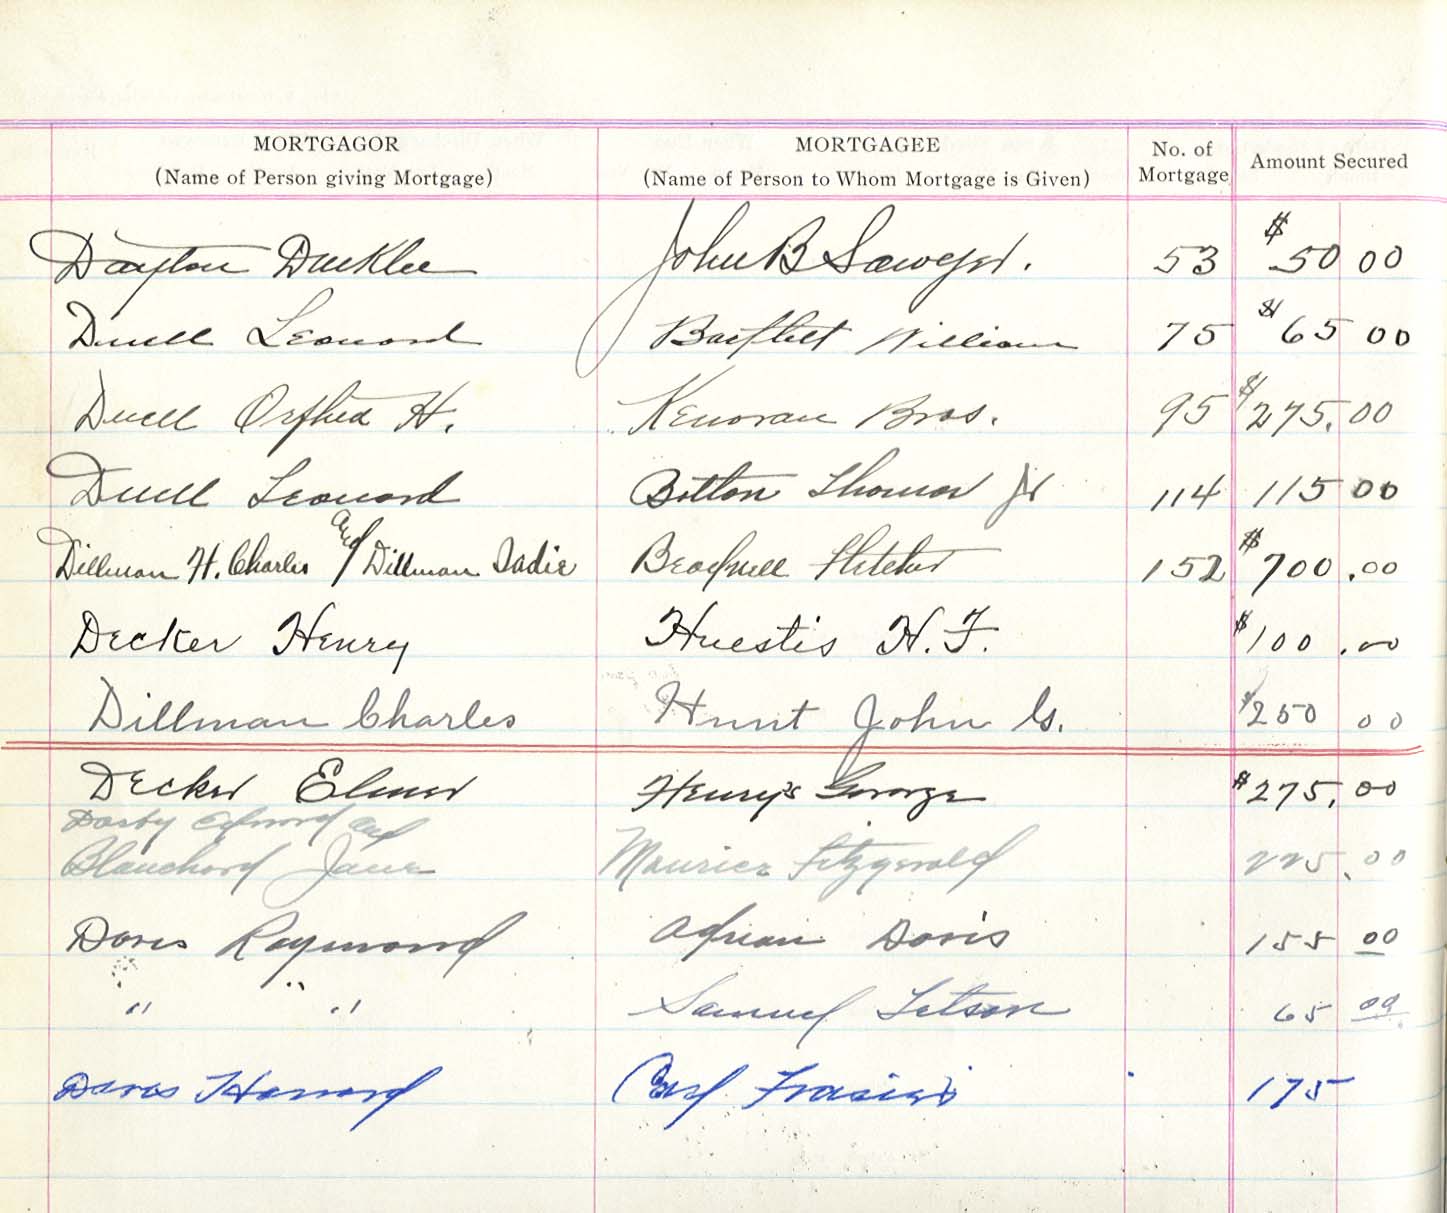 MORTGAGOR MORTGAGEE No. of Amount Secured
(Name of Person giving Mortgage) (Name of Person to Whom Mortgage is Given) Mortgage
Dayton Duklee John B Sawyer. 53 $50 00
Duell Leonard Bartlett William 75 $65 00
Duell Orphed H. Kenoran Bros. 95 $275.00
Duell Leonard Botton Thomas Jr 114 115 00
Dillman H. Charles and Dillman Sadie Bracknell Fletcher 152 $700.00
Decker Henry Huestis H. F. $100.00
Dillman Charles Hunt John G. $250 00
Decker Elmer Henry's George $275.00
Darby Edward and
Blanchard Jane Maurice Fitzgerald 225.00
Davis Raymond Adrian Davis 155 00
" " Samuel Letson 65 00
Davis Harvard Carl Frasier 175